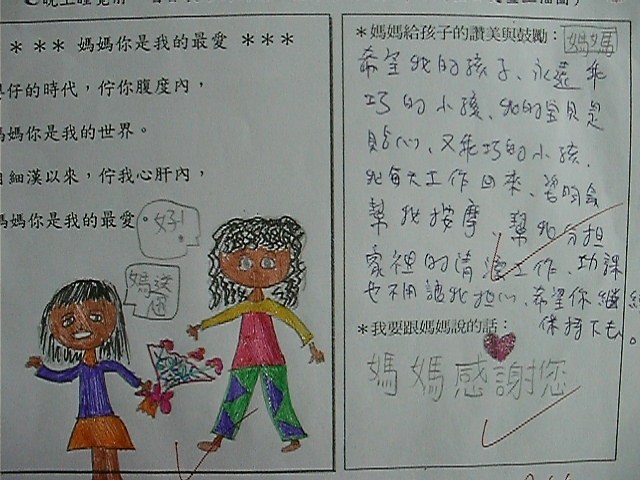 ＊＊＊ 媽媽你是我的最愛 ＊＊＊
仔的時代，佇你腹度內，
媽媽你是我的世界。
細漢以來，佇我心肝內，
媽媽你是我的最愛。
好!
媽送您
＊媽媽給孩子的讚美與鼓勵：媽媽
希望我的孩子、永遠乖
巧的小孩、我的宝貝是
貼心、又乖巧的小孩、
我每天工作回來、習的會
幫我按摩、幫我分担
家裡的清潔工作、功課
也不用讓我担心、希望你繼続
保持下去。
＊我要跟媽媽說的話：
媽媽感謝您